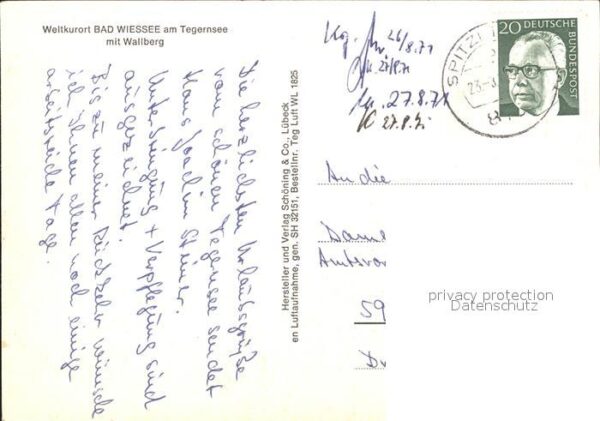 Weltkurort BAD WIESSEE am Tegernsee
mit Wallberg
Die herzlichsten Urlaubsgrüße
vom schönen Tegernsee sendet
Hans Joachim
Unterbringung + Verpflegung sind
ausgezeichnet.
Bis zu meiner Rückkehr wünsche
ich Ihnen allen noch einige
arbeitsreiche Tage.
Hersteller und Verlag Schöning & Co., Lübeck
en Luftaufnahme, gen. SH 32151, Bestellnr. Teg Luft WL 1825
Kg. 26/8.71
27/8.71
27.8.71
27.8.
20 DEUTSCHE
BUNDESPOST
SPITZI
An die
Dame
Amtsvor
59
privacy protection
Datenschutz